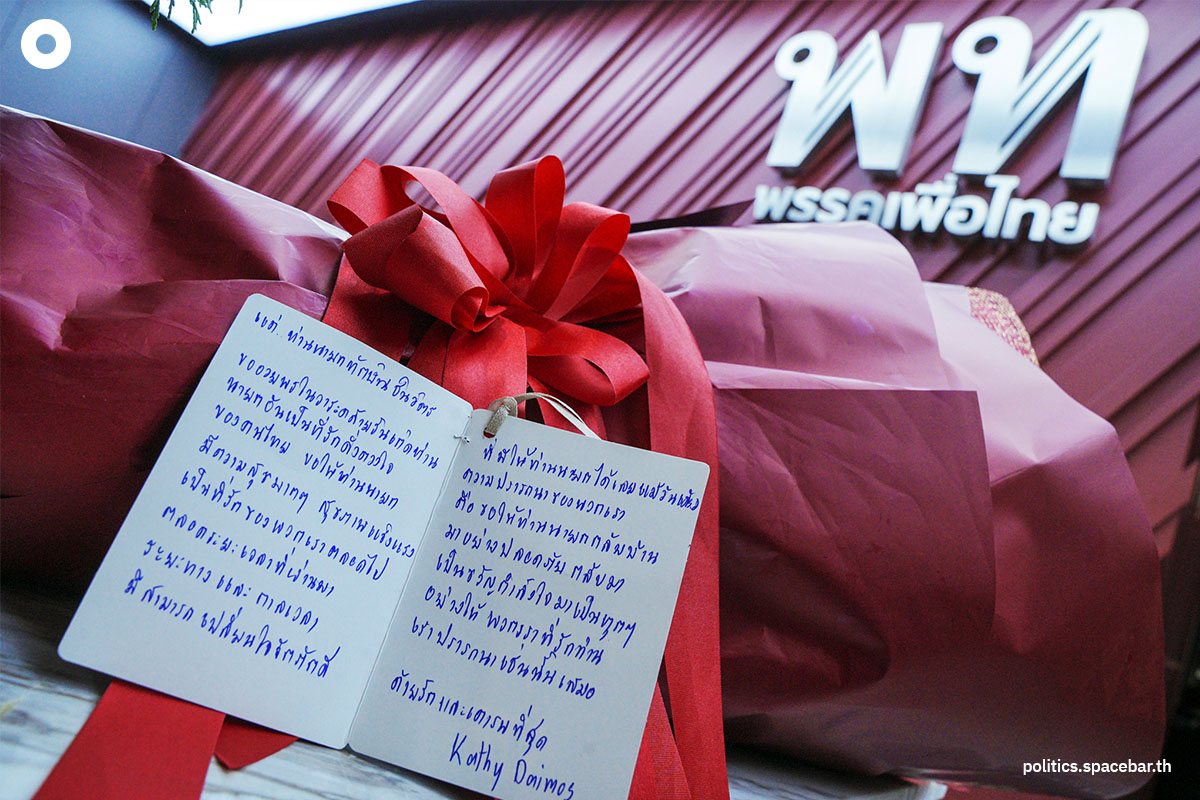 พท
พรรคเพื่อไทย
แด่.. ท่านนายกทักษิณ ชินวัตร
ขออวยพรในวาระคล้ายวันเกิดท่าน
นายกอันเป็นที่รักดั่งดวงใจ
ของคนไทย ขอให้ท่านนายก
มีความสุขมากๆ สุขภาพแข็งแรง
เป็นที่รักของพวกเราตลอดไป
ตลอดระยะเวลาที่ผ่านมา
ระยะทาง และ กาลเวลา
มิสามารถ เปลี่ยนใจรักภักดี
ที่มีให้ท่านนายกได้เลยแม้วันเดียว
ความปรารถนาของพวกเรา
คือ ขอให้ท่านนายกกลับบ้าน
มาอย่างปลอดภัย กลับมา
เป็นขวัญกำลังใจ มาเป็นทุกๆ
อย่างให้ พวกเราที่รักท่าน
เราปรารถนาเช่นนั้นเสมอ
ด้วยรักและเคารพที่สุด
Kathy Daimos
politics.spacebar.th